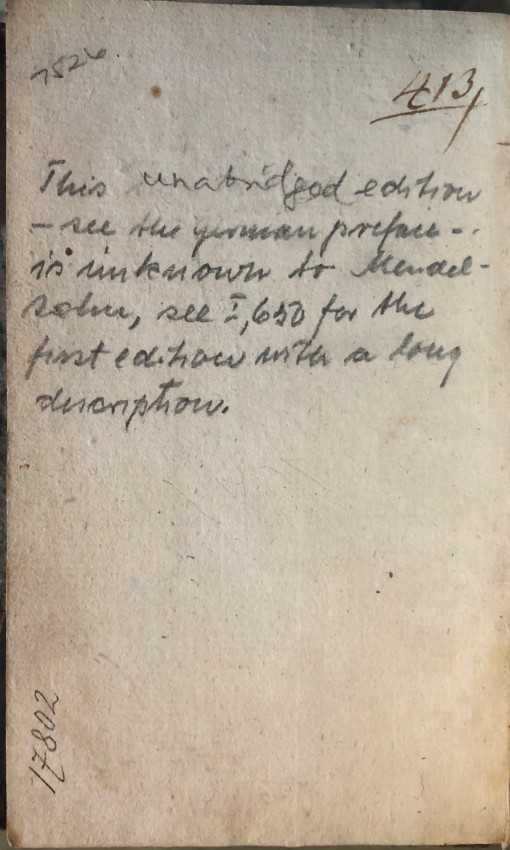 7526.
413
This unabridged edition
– see the german preface –.
is unknown to Mendel-
sohn, see I,650 for the
first edition with a long
description.
17802